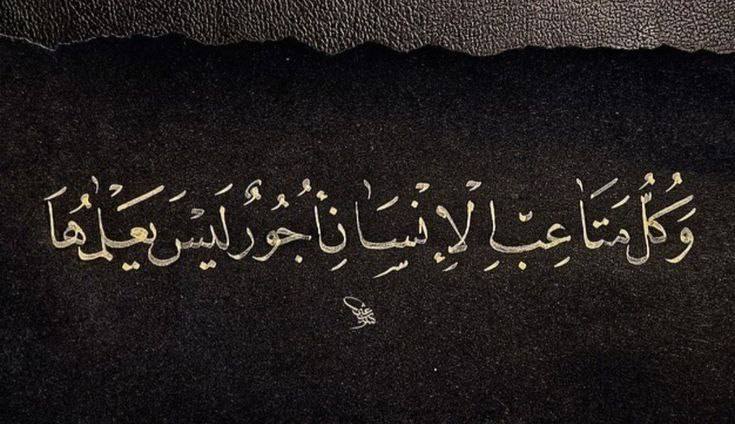 وَكُلُّ مَتَاعِبِ الْإِنْسَانِ أُجُورٌ لَيْسَ يَعْلَمُهَا